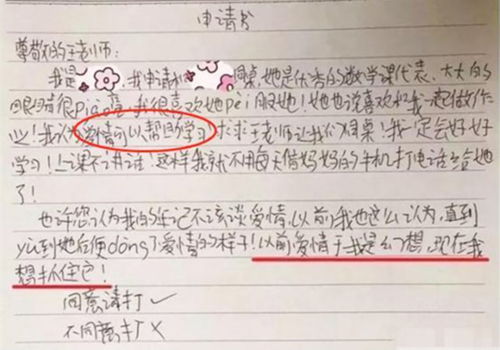 申请书
尊敬的王老师：
我是，我申请和同桌，她是优秀的数学课代表、大大的
眼睛很piao亮，我很喜欢她pei服她！她也说喜欢和我一起做作
业！我认为爱情可以帮助学习求求王老师让我们同桌！我一定会好好
学习！上课不讲话！这样我就不用每天借妈妈的手机打电话给她
了！
也许您认为我的年记不该谈爱情，以前我也这么认为，直到
yù到她后便dong了爱情的样子！以前爱情于我是幻想，现在我
想抓住它！
同意请打✓
不同意打✗